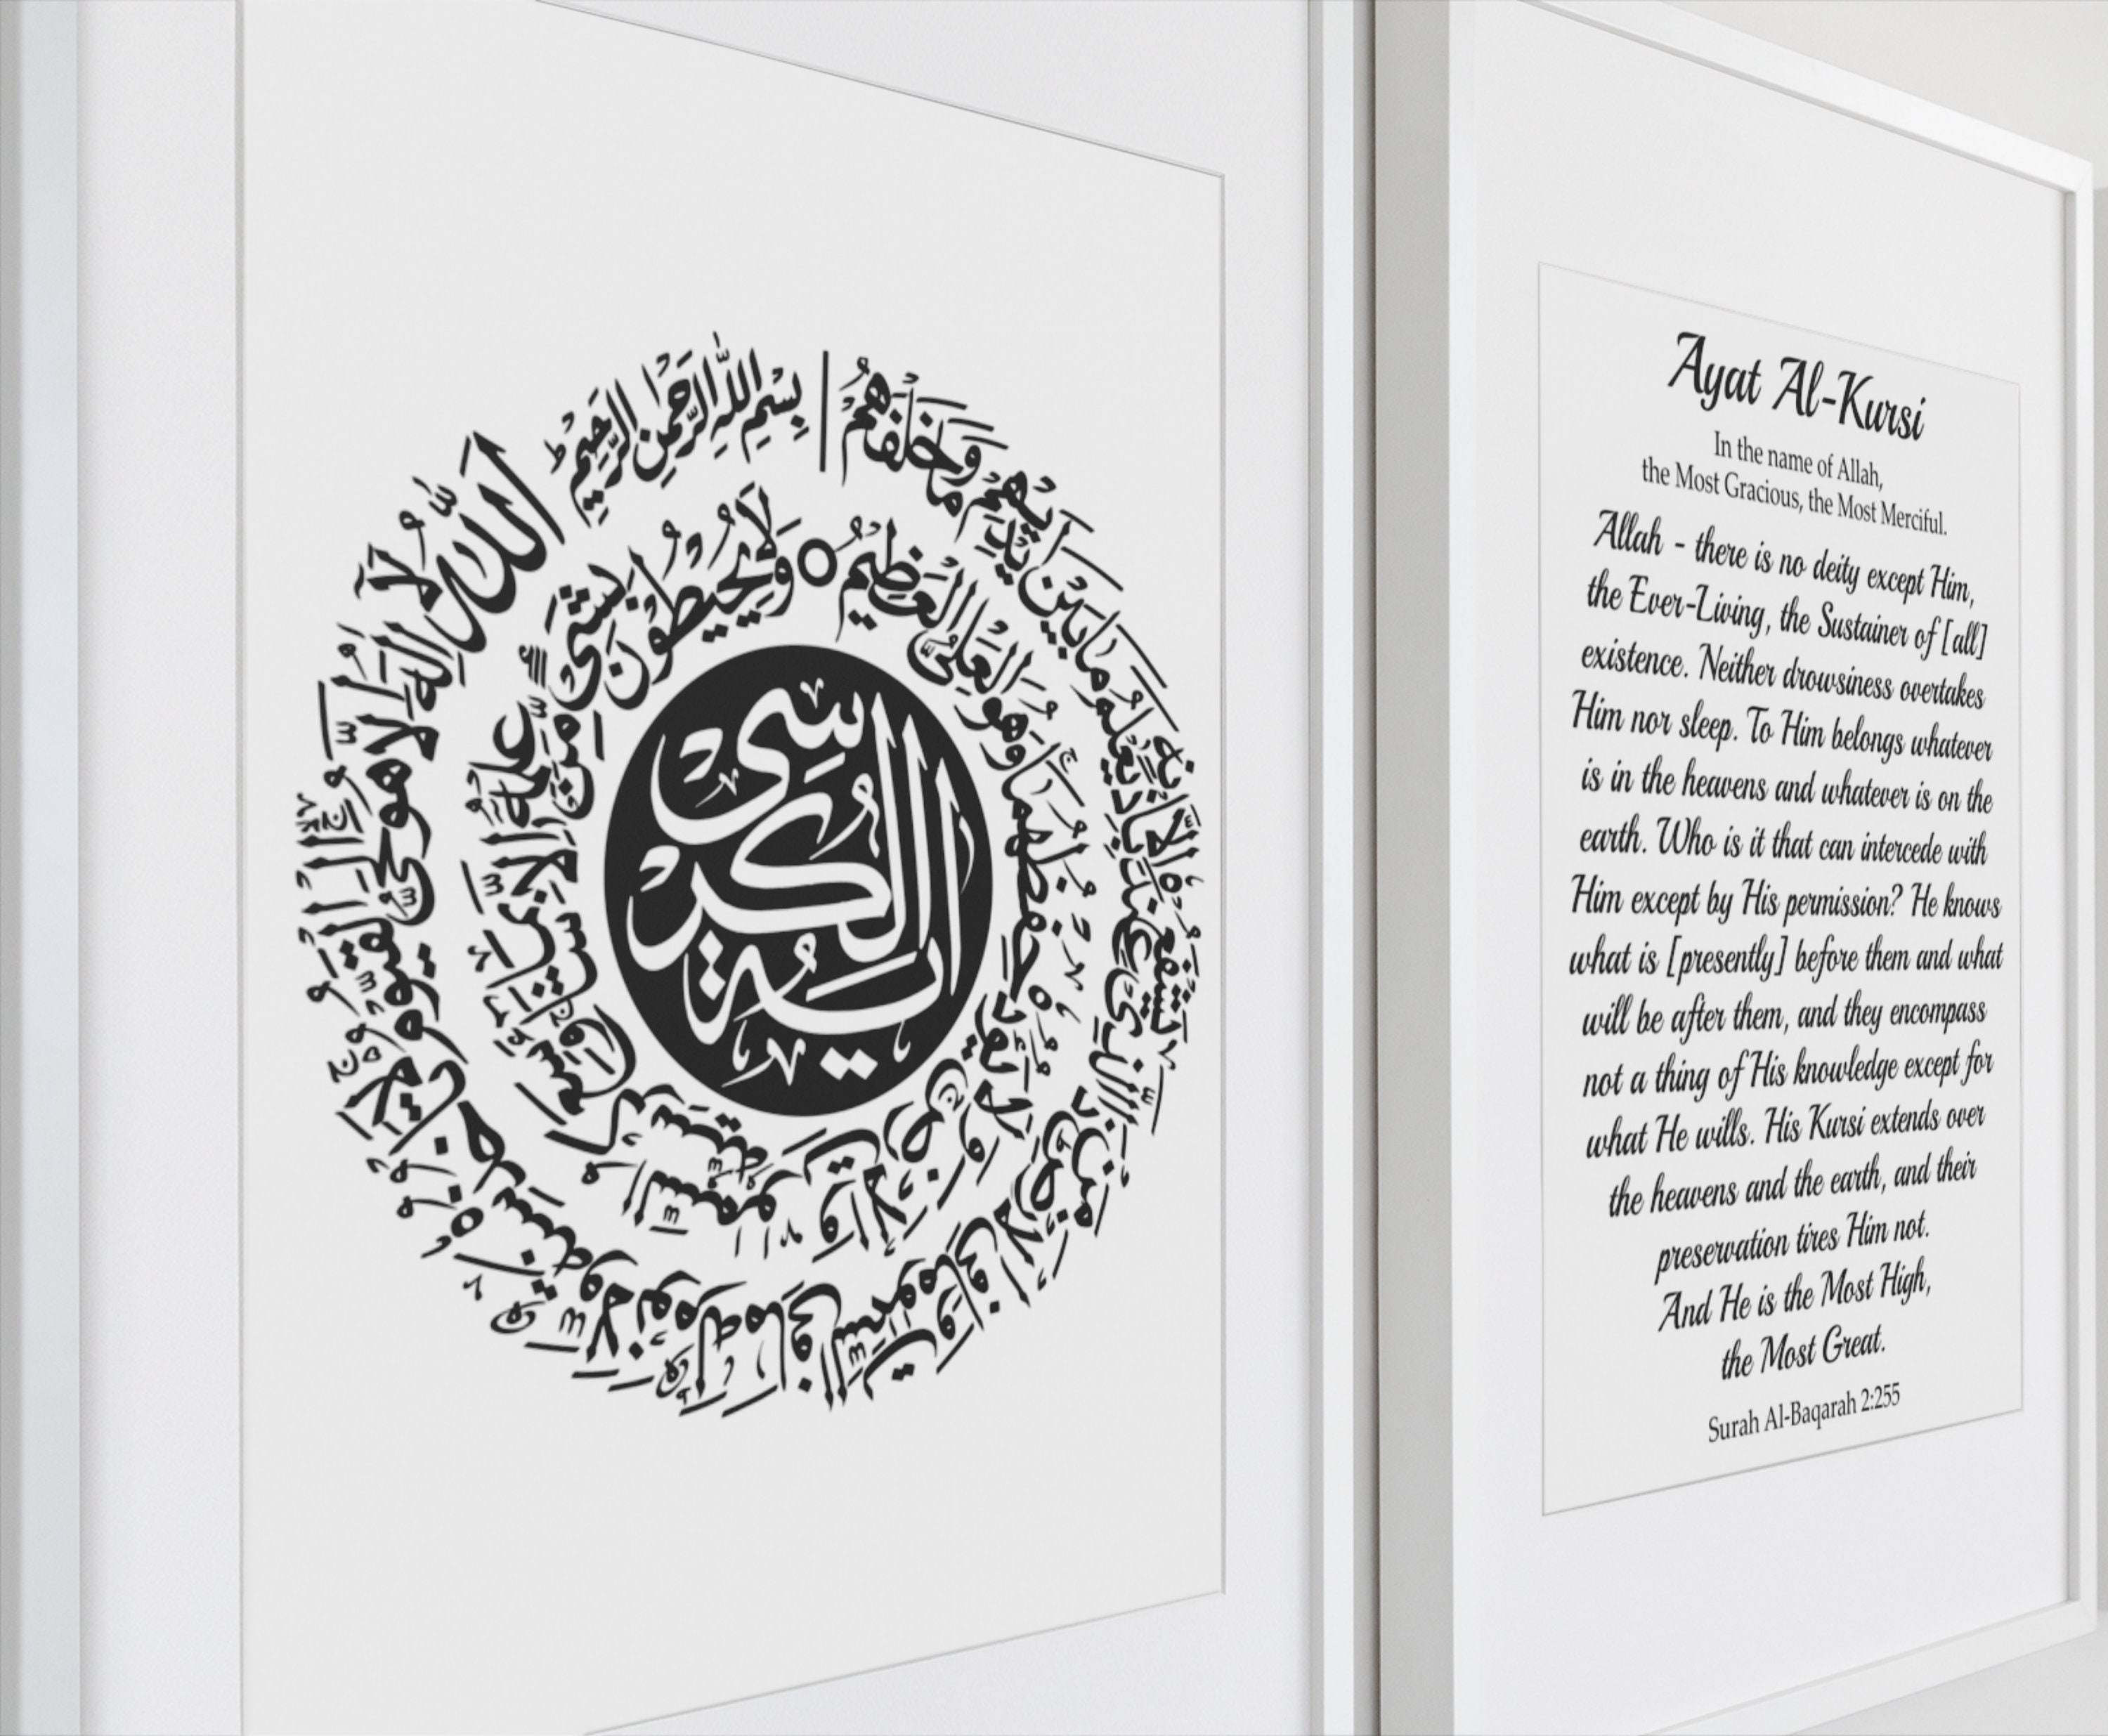 بِسْمِ اللّٰهِ الرَّحْمٰنِ الرَّحِيْمِ اَللّٰهُ لَآ اِلٰهَ اِلَّا هُوَ اَلْحَيُّ الْقَيُّوْمُ لَا تَاْخُذُهٗ سِنَةٌ وَّلَا نَوْمٌ لَهٗ مَا فِي السَّمٰوٰتِ وَمَا فِي الْاَرْضِ مَنْ ذَا الَّذِيْ يَشْفَعُ عِنْدَهٗٓ اِلَّا بِاِذْنِهٖ يَعْلَمُ مَا بَيْنَ اَيْدِيْهِمْ وَمَا خَلْفَهُمْ
وَلَا يُحِيْطُوْنَ بِشَيْءٍ مِّنْ عِلْمِهٖٓ اِلَّا بِمَا شَآءَ وَسِعَ كُرْسِيُّهُ السَّمٰوٰتِ وَالْاَرْضَ وَلَا يَـُٔوْدُهٗ حِفْظُهُمَا وَهُوَ الْعَلِيُّ الْعَظِيْمُ
اية الكرسى
Ayat Al-Kursi
In the name of Allah,
the Most Gracious, the Most Merciful.
Allah - there is no deity except Him,
the Ever-Living, the Sustainer of [all]
existence. Neither drowsiness overtakes
Him nor sleep. To Him belongs whatever
is in the heavens and whatever is on the
earth. Who is it that can intercede with
Him except by His permission? He knows
what is [presently] before them and what
will be after them, and they encompass
not a thing of His knowledge except for
what He wills. His Kursi extends over
the heavens and the earth, and their
preservation tires Him not.
And He is the Most High,
the Most Great.
Surah Al-Baqarah 2:255